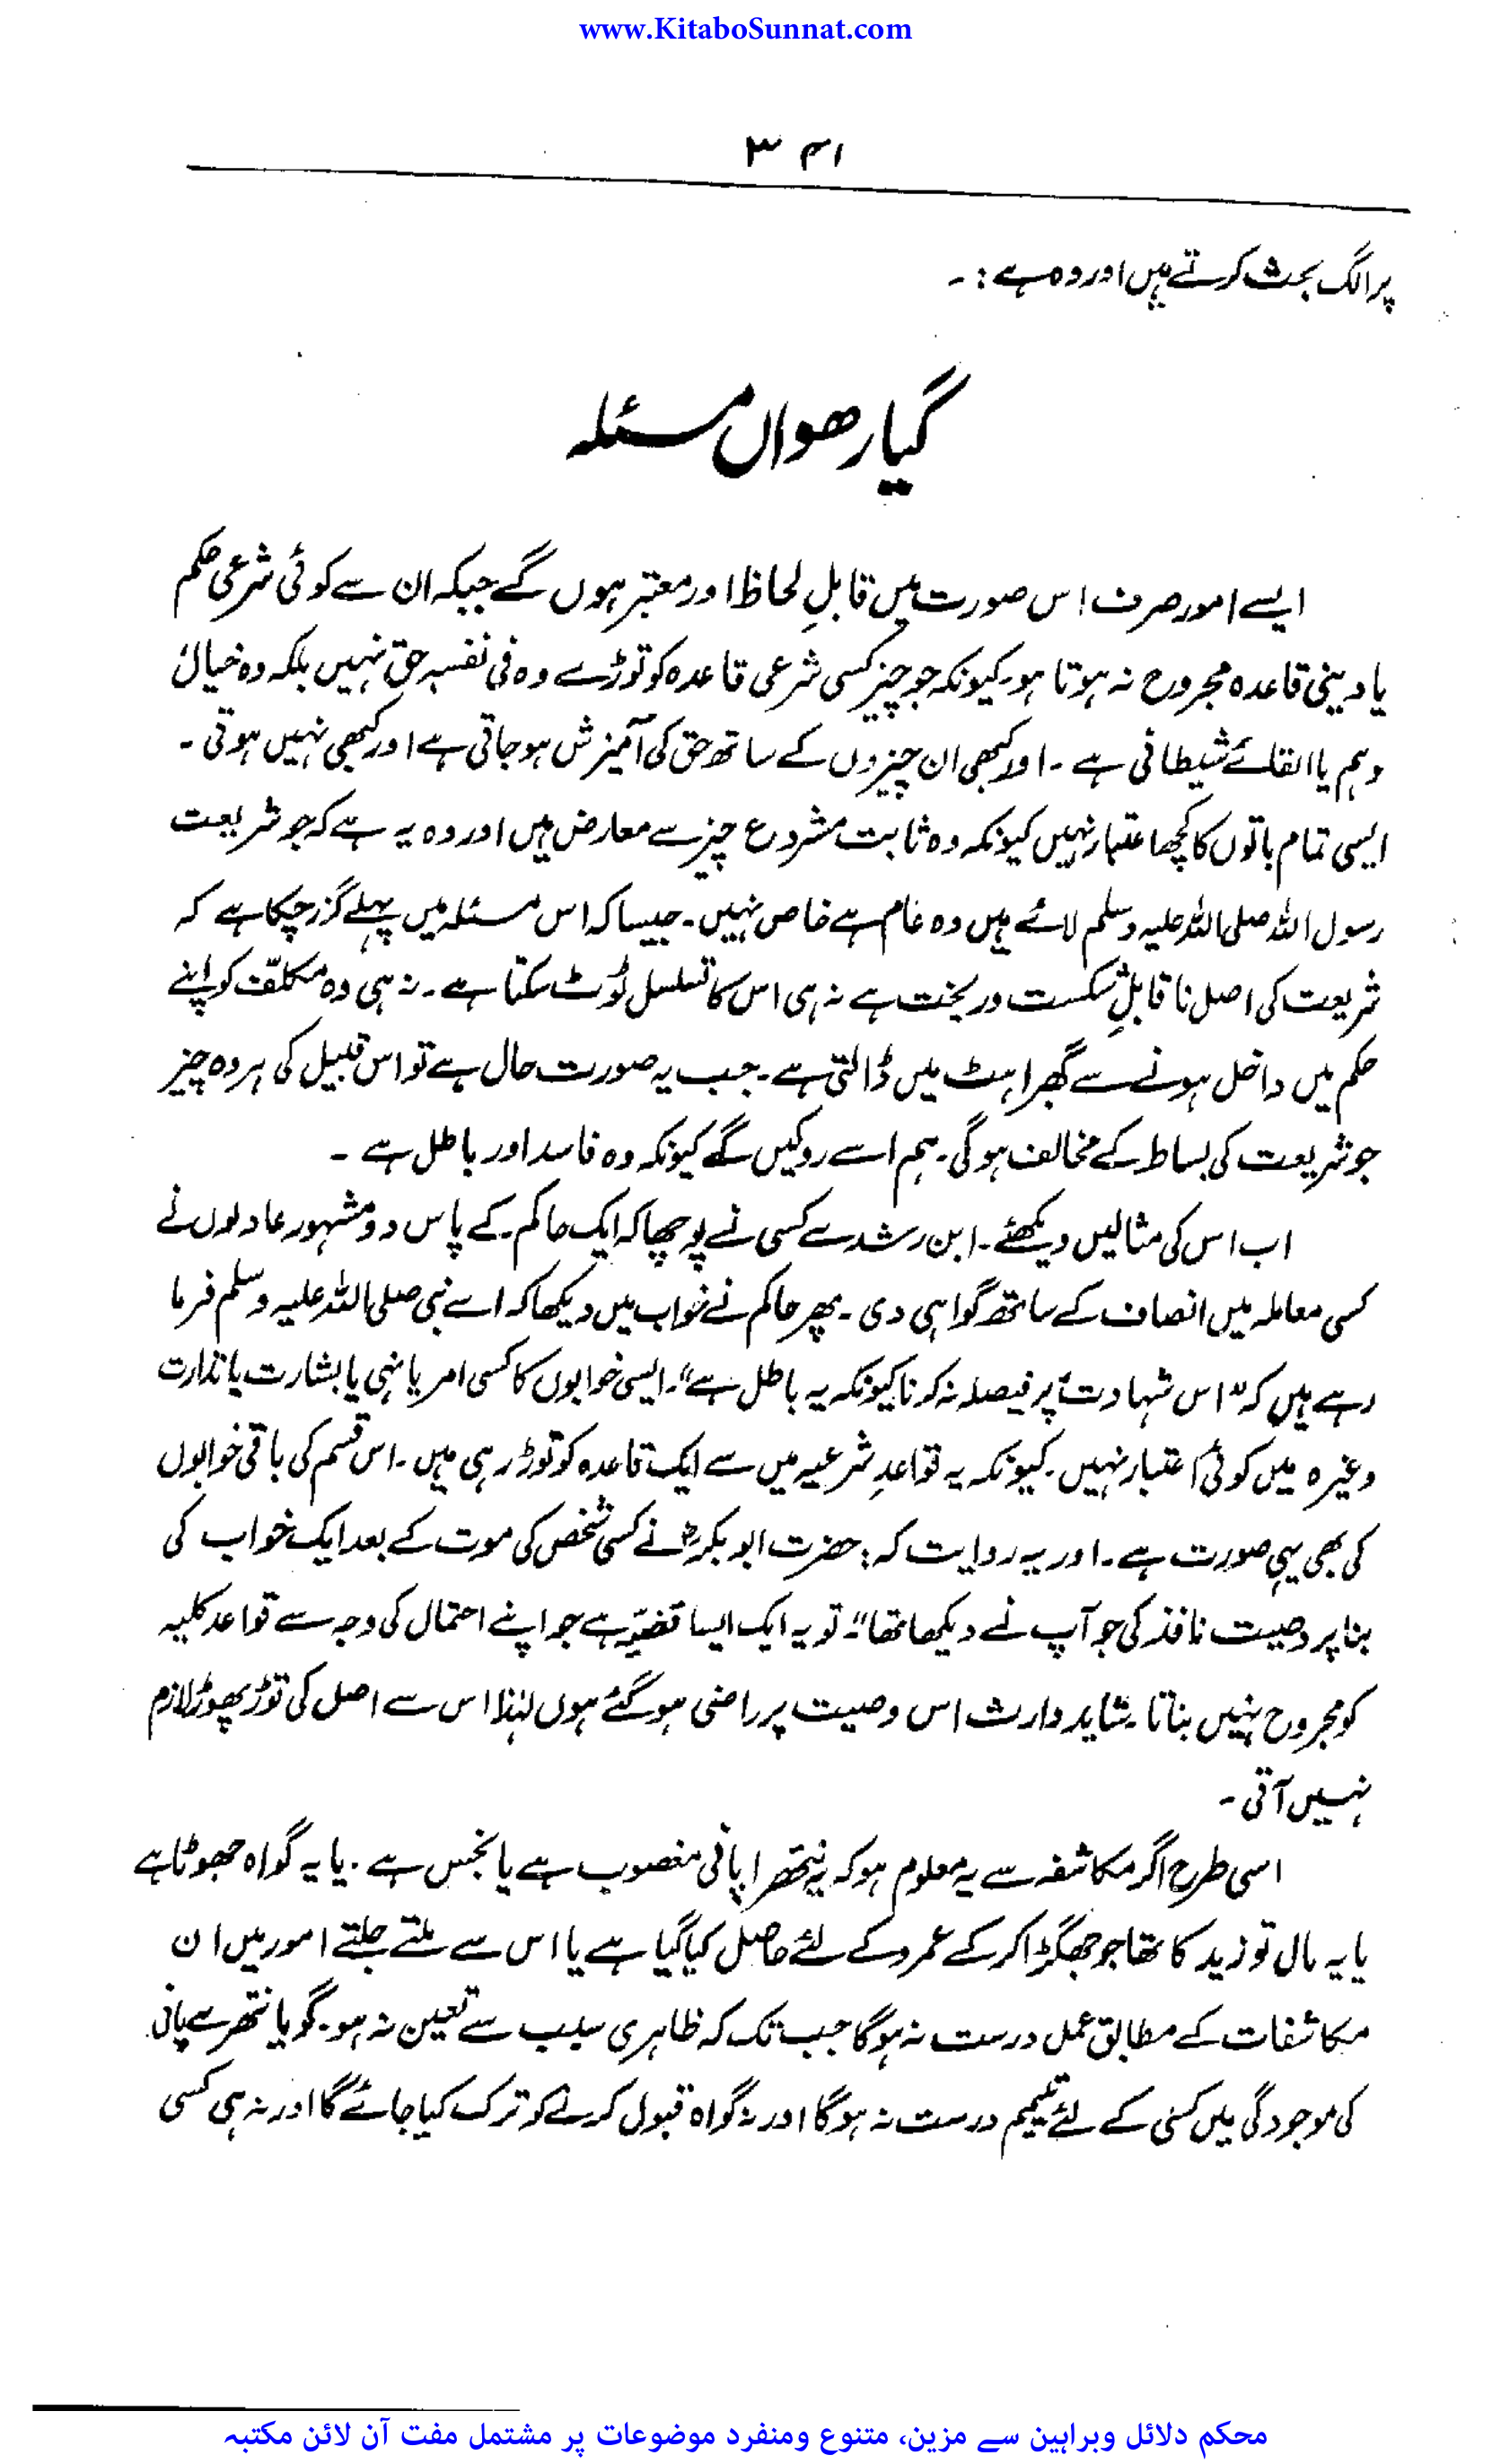 www.KitaboSunnat.com
۳۴۱
پر الگ بحث کرتے ہیں اور وہ ہے :۔
گیارھواں مسئلہ
ایسے امور صرف اس صورت میں قابلِ لحاظ اور معتبر ہوں گے جبکہ ان سے کوئی شرعی حکم
یا دینی قاعدہ مجروح نہ ہوتا ہو۔ کیونکہ جو چیز کسی شرعی قاعدہ کو توڑے وہ فی نفسہٖ حق نہیں بلکہ وہ خیال
وہم یا القائے شیطانی ہے ۔ اور کبھی ان چیزوں کے ساتھ حق کی آمیزش ہو جاتی ہے اور کبھی نہیں ہوتی ۔
ایسی تمام باتوں کا کچھ اعتبار نہیں کیونکہ وہ ثابت مشروع چیز سے معارض ہیں اور وہ یہ ہے کہ جو شریعت
رسول اللہ صلی اللہ علیہ وسلم لائے ہیں وہ عام ہے خاص نہیں۔ جیسا کہ اس مسئلہ میں پہلے گزر چکا ہے کہ
شریعت کی اصل ناقابلِ شکست و ریخت ہے نہ ہی اس کا تسلسل ٹوٹ سکتا ہے۔ نہ ہی وہ مکلّف کو اپنے
حکم میں داخل ہونے سے گھبراہٹ میں ڈالتی ہے۔ جب یہ صورت حال ہے تو اس قبیل کی ہر وہ چیز
جو شریعت کی بساط کے مخالف ہو گی۔ ہم اسے روکیں گے کیونکہ وہ فاسد اور باطل ہے ۔
اب اس کی مثالیں دیکھئے۔ ابن رشد سے کسی نے پوچھا کہ ایک حاکم کے پاس دو مشہور عادلوں نے
کسی معاملہ میں انصاف کے ساتھ گواہی دی ۔ پھر حاکم نے خواب میں دیکھا کہ اسے نبی صلی اللہ علیہ وسلم فرما
رہے ہیں کہ "اس شہادت پر فیصلہ نہ کرنا کیونکہ یہ باطل ہے"۔ ایسی خوابوں کا کسی امر یا نہی یا بشارت یا نذارت
وغیرہ میں کوئی اعتبار نہیں۔ کیونکہ یہ قواعدِ شرعیہ میں سے ایک قاعدہ کو توڑ رہی ہیں ۔ اس قسم کی باقی خوابوں
کی بھی یہی صورت ہے ۔ اور یہ روایت کہ : حضرت ابوبکرؓ نے کسی شخص کی موت کے بعد ایک خواب کی
بنا پر وصیت نافذ کی جو آپ نے دیکھا تھا"۔ تو یہ ایک ایسا قضیّہ ہے جو اپنے احتمال کی وجہ سے قواعد کلیہ
کو مجروح نہیں بناتا ۔ شاید وارث اس وصیت پر راضی ہو گئے ہوں لہٰذا اس سے اصل کی توڑ پھوڑ لازم
نہیں آتی ۔
اسی طرح اگر مکاشفہ سے یہ معلوم ہو کہ یہ نتھرا پانی مغصوب ہے یا نجس ہے ۔ یا یہ گواہ جھوٹا ہے
یا یہ مال تو زید کا تھا جو جھگڑا کر کے عمرو کے لئے حاصل کیا گیا ہے یا اس سے ملتے جلتے امور میں ان
مکاشفات کے مطابق عمل درست نہ ہو گا جب تک کہ ظاہری سبب سے تعین نہ ہو۔ گویا نتھرے پانی
کی موجودگی میں کسی کے لئے تیمم درست نہ ہو گا اور نہ گواہ قبول کرنے کو ترک کیا جائے گا اور نہ ہی کسی
محکم دلائل وبراہین سے مزین، متنوع ومنفرد موضوعات پر مشتمل مفت آن لائن مکتبہ